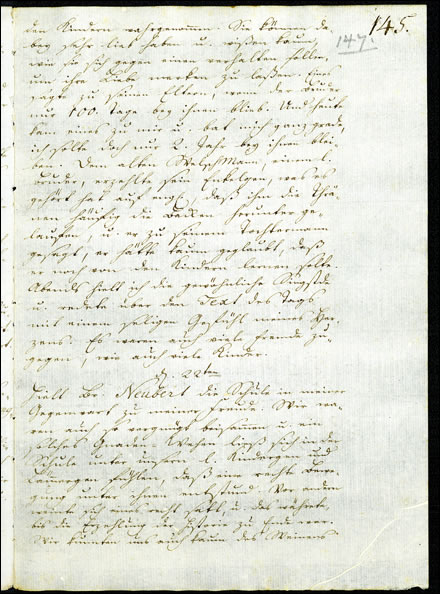 147. 145.
den Kindern wahrgenommen. Sie können da-
bey sehr lieb haben u. wißen kaum,
wie sie sich gegen einen verhalten sollen,
um ihre Liebe merken zu laßen. Eins
sagte zu seinen Eltern, wenn der Bruder
nur 100. Tage bey ihnen blieb. Und heute
kam eines zu mir u. bat mich ganz grade,
ich solte doch nur 2. Jahr bey ihnen blei-
ben. Dem alten Welsch Mann, einem l.
Bruder, erzehlte sein Enkelgen, was es
gehört hat auf engl. daß ihm die Thrä-
nen häufig die Backen herunter ge-
laufen u. er zu seinem Tochtermann
gesagt, er hätte kaum geglaubt, daß
er noch von den Kindern lernen solte.
Abends hielt ich die gewöhnliche Singstde
u. redete über den Text des Tags
mit einem seligen Gefühl meines Her-
zens. Es waren auch viele fremde zu-
gegen, wie auch viele Kinder.
d. 22ten
Hielt Br. Neubert die Schule in meiner
Gegenwart zu meiner Freude. Wir wa-
ren auch so vergnügt beysammen u. ein
solches Gnaden-Wehen ließ sich in der
Schule unter unsern l. Kindergen und
fühlen, daß eine rechte Bewe-
gung unter ihnen entstund.
u. das währete,
bis die Erzehlung der Historie zu Ende war.
Wir konnten uns auch kaum des Weinens